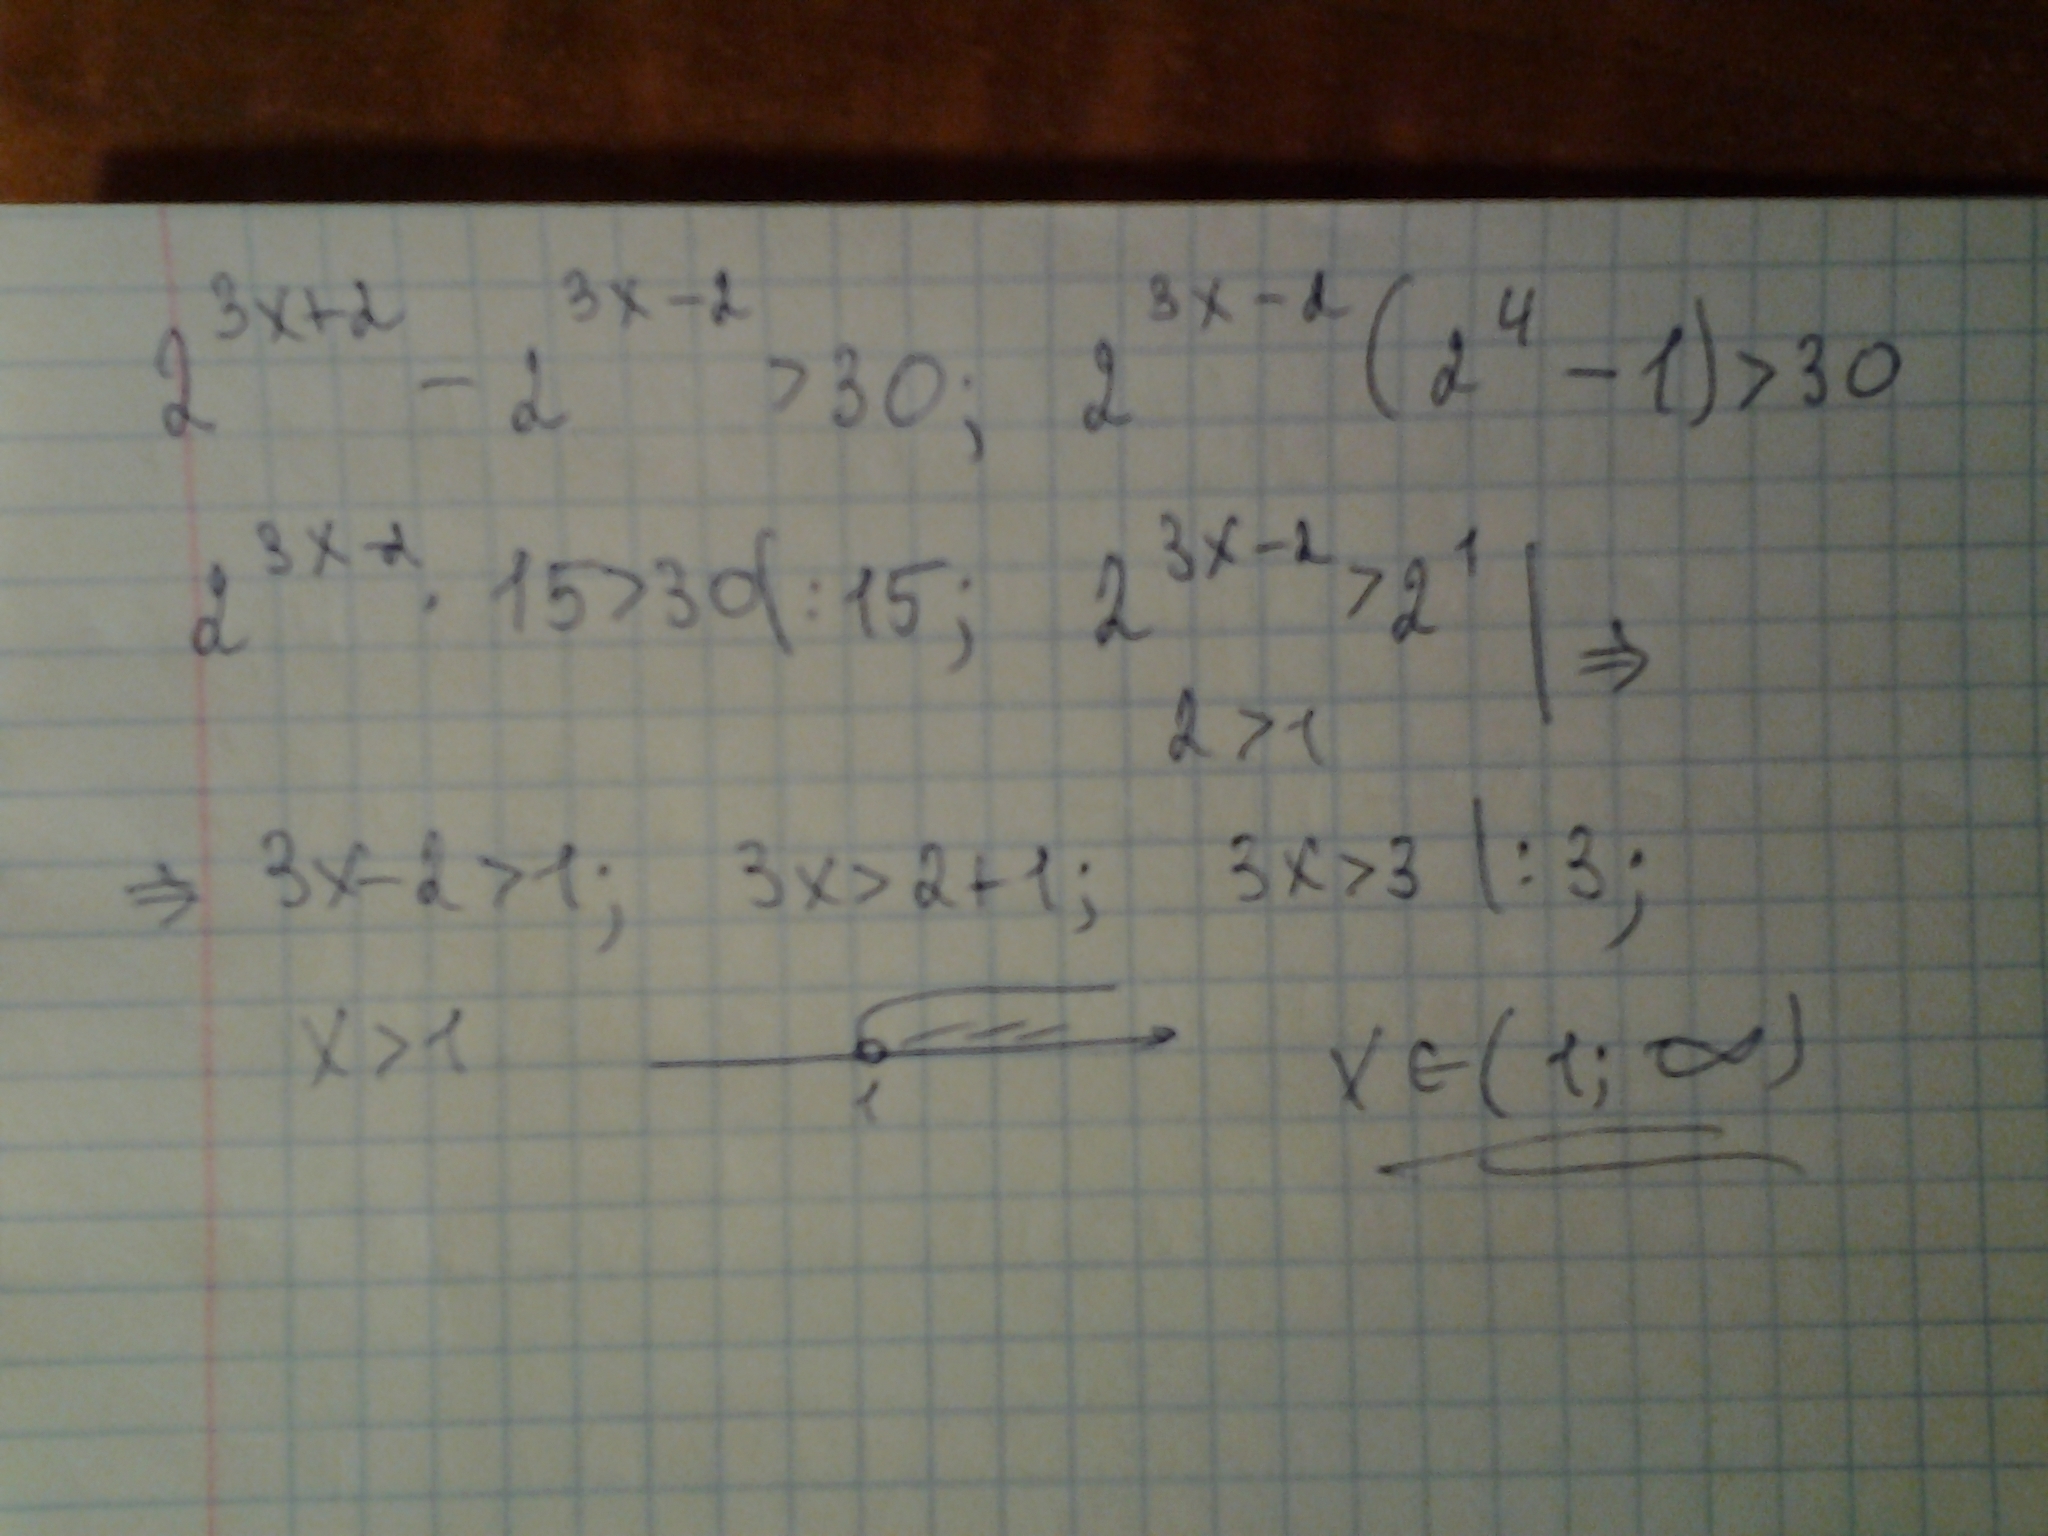 2^{3x+2} - 2^{3x-2} > 30; 2^{3x-2} (2^4 - 1) > 30
2^{3x-2} · 15 > 30 | : 15; 2^{3x-2} > 2^1 | ⇒
2 > 1
⇒ 3x - 2 > 1; 3x > 2 + 1; 3x > 3 | : 3;
x > 1 x ∈ (1; ∞)
1